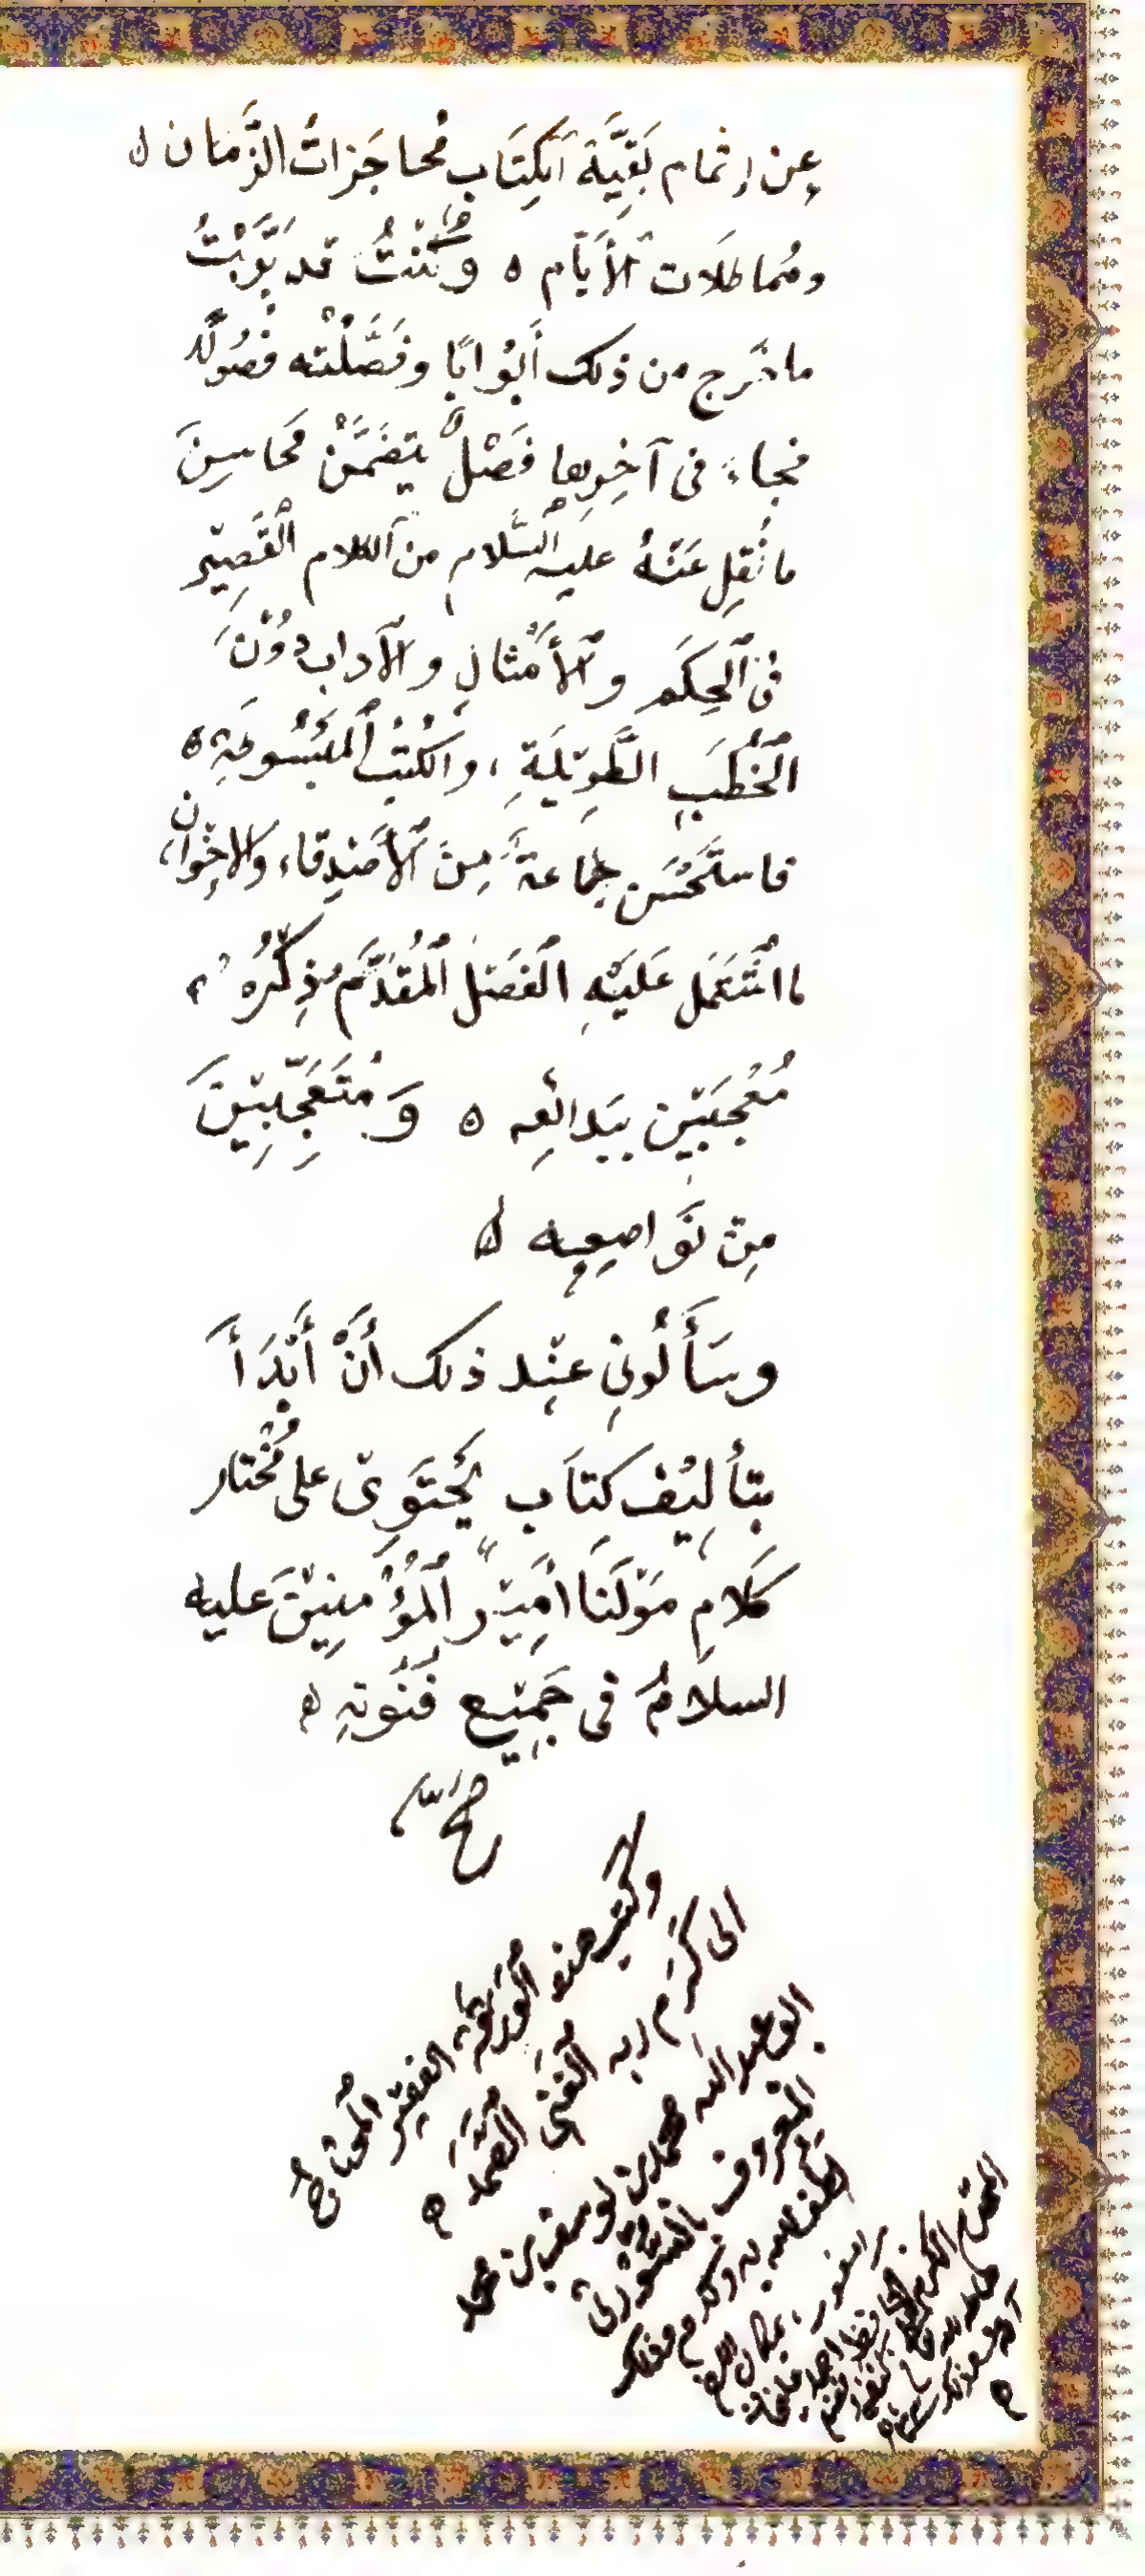 عِن إتمام بَقِيَّة ٱلكِتَاب مُحاجَزاتُ الزَّمان
ومُماطَلَات ٱلأَيَّام ه وَكُنْتُ قد بَوَّبْتُ
ما خَرج من ذلك أَبْوابًا وفَصَّلْتُه فُصُولًا
فجاء في آخِرِها فَصْلٌ يَتضَمَّنُ مَحاسِنَ
ما نُقِل عَنْهُ عليه ٱلسَّلام من ٱلكلام ٱلْقَصِيْر
في ٱلْحِكَمِ وٱلأَمْثالِ وٱلآداب دُوْنَ
ٱلْخُطَبِ الطَّوِيْلَةِ، والكُتُبِ ٱلْمَبْسُوطَةِ ه
فاستَحْسَن جَماعةٌ مِنَ ٱلأَصْدِقاء، وَالإخْوان،
ما اشْتَمَل عَلَيْهِ الْفَصْل ٱلْمُقَدَّم ذِكْرُهُ،
مُعْجَبَيْن بِبَدائِعِه ه وَمُتَعَجِّبِيْنَ
مِنْ نَوَاصِعِه
وسَأَلُونِي عِنْد ذلك أَنْ أَبْدَأَ
بتأْلِيْف كتَاب يَحْتَوِيْ على مُخْتار
كَلامِ مَوْلَنَا أَمِيْر ٱلْمُؤْمِنِيْنَ عليه
السلامُ في جَمِيْع فُنُونِهِ ه
صح
وكتب هذه ٱلْوَرَقة الفقيْر ٱلْمُحتاجُ
الى كَرَم ربه ٱلْغَنِيِّ الصَّمَد ه
ابو عبد الله محمد بن يوسف بن محمد
المعْرُوف
لَطَفَ الله به